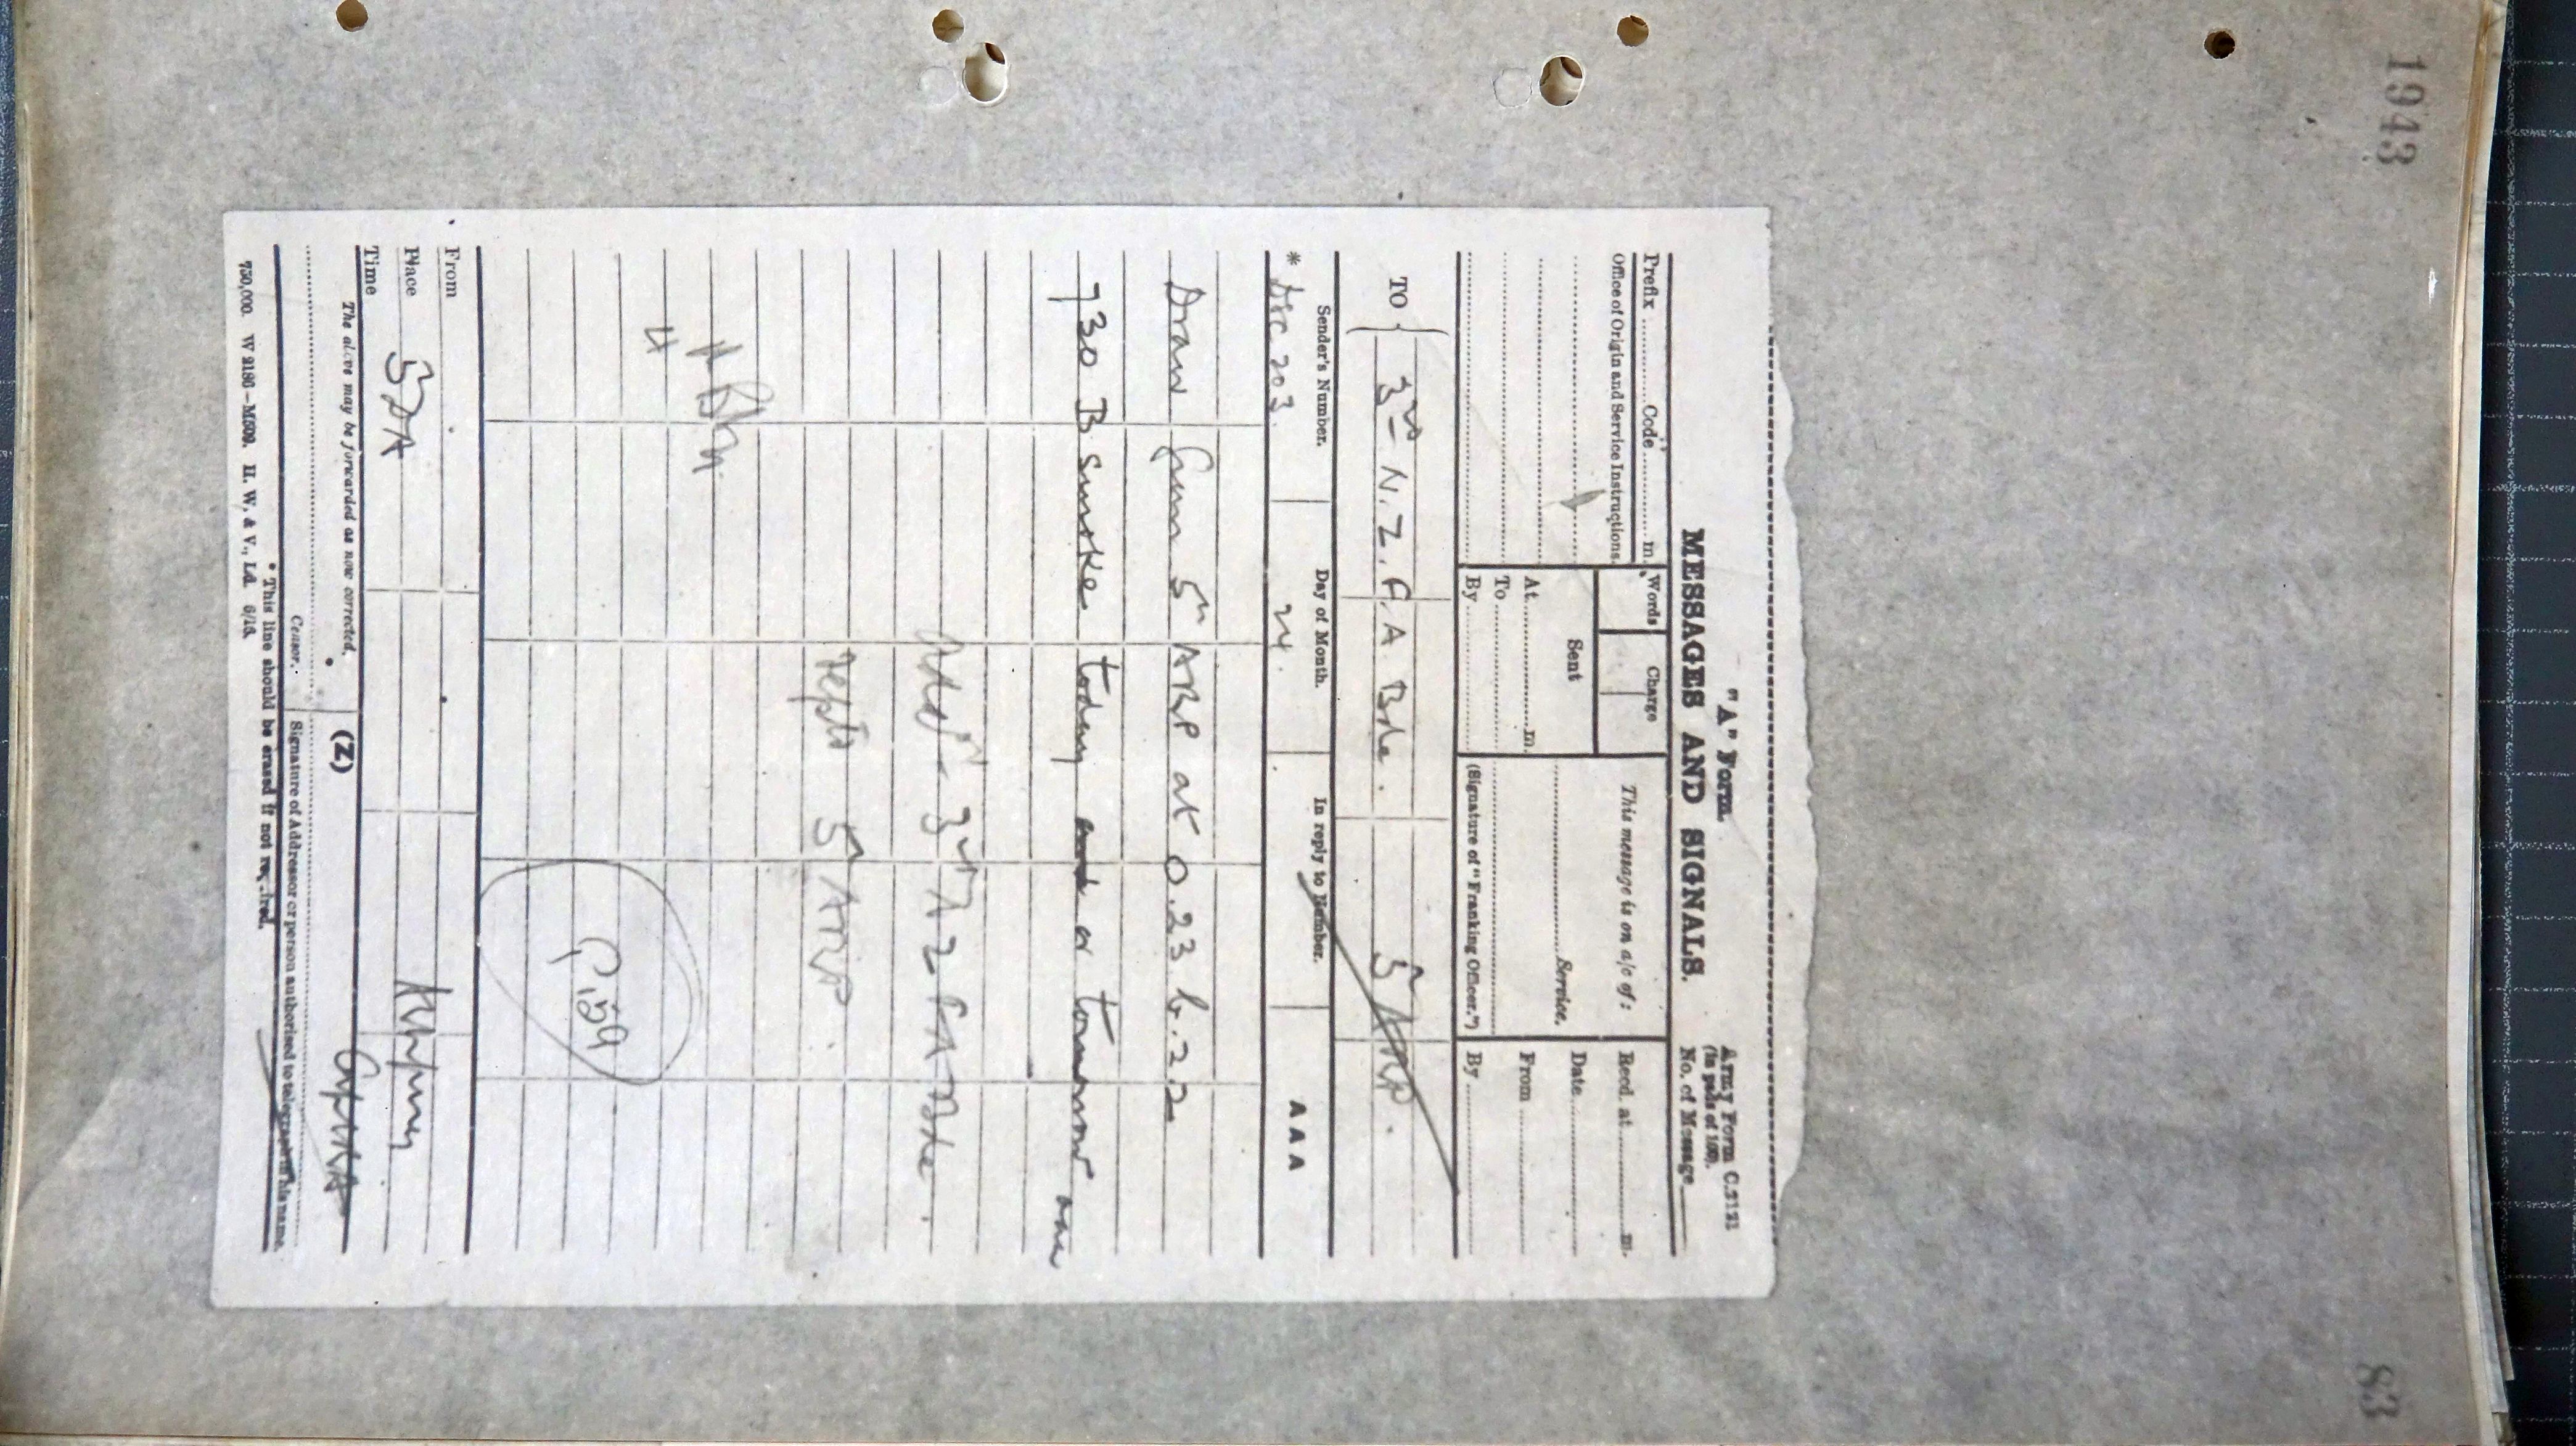 1943
83
"A" Form.
Army Form C.2121
(In pads of 100).
MESSAGES AND SIGNALS.
No. of Message
Prefix Code m.
Words Charge
This message is on a/c of:
Recd. at m.
Office of Origin and Service Instructions.
Sent
Service.
Date
At m.
From
To
By
(Signature of "Franking Officer.")
By
TO 3rd N.Z.F.A. Bde. 5th ARP.
Sender's Number. Day of Month. In reply to Number. AAA
* 203. 24.
Draw from 5th ARP at O.23.b.2.2
730 B smoke today and or tomorrow aaa
3rd NZFA Bde.
reptd 5th ARP.
From
Place
Time
The above may be forwarded as now corrected. (Z)
Censor. Signature of Addressor or person authorised to telegraph in his name.
* This line should be erased if not required.
750,000. W 2186-M509. H. W. & V., Ld. 6/16.